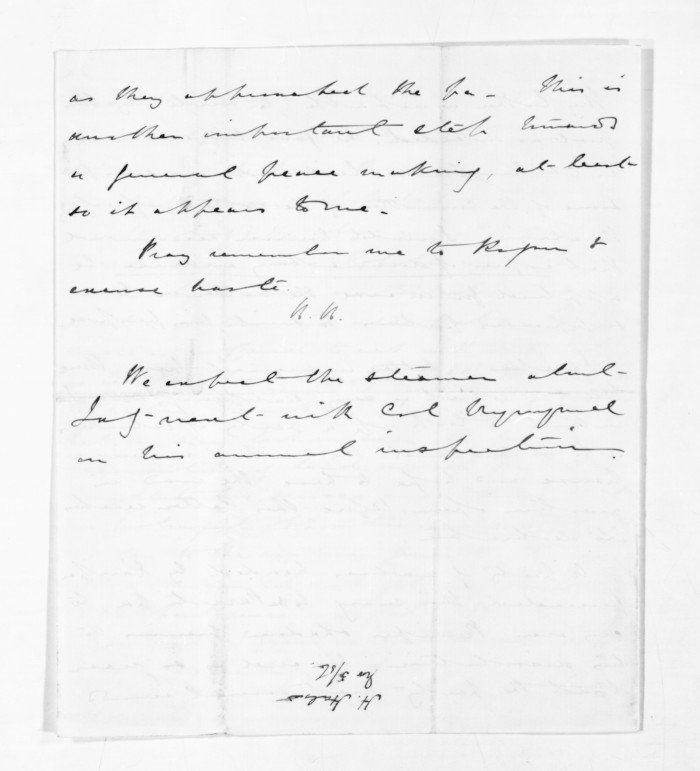 as they approached the pa - This is
another important step towards
a general peace making, at least
so it appears to me -
Pray remember me to Rogan &
excuse haste.
H. H.
We expect the steamer about
Tuesday next with Col Wynyard
on his annual inspection.
H. Halse